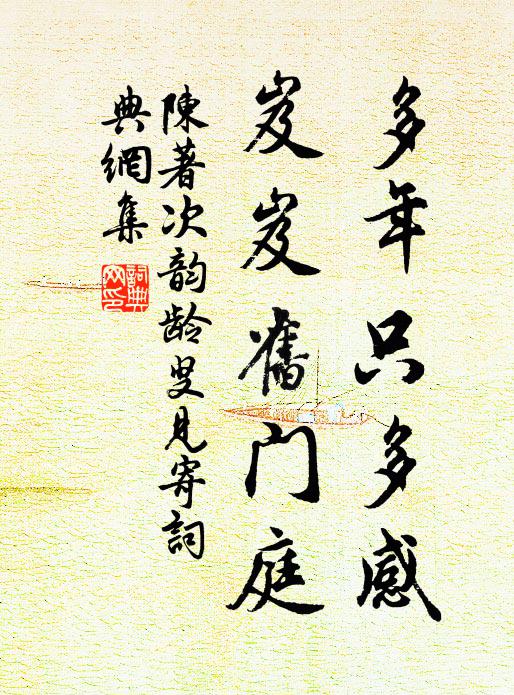 多年只多感
岌岌舊門庭
陳著次韵龄叟見寄詞
典網集
詞典
网印